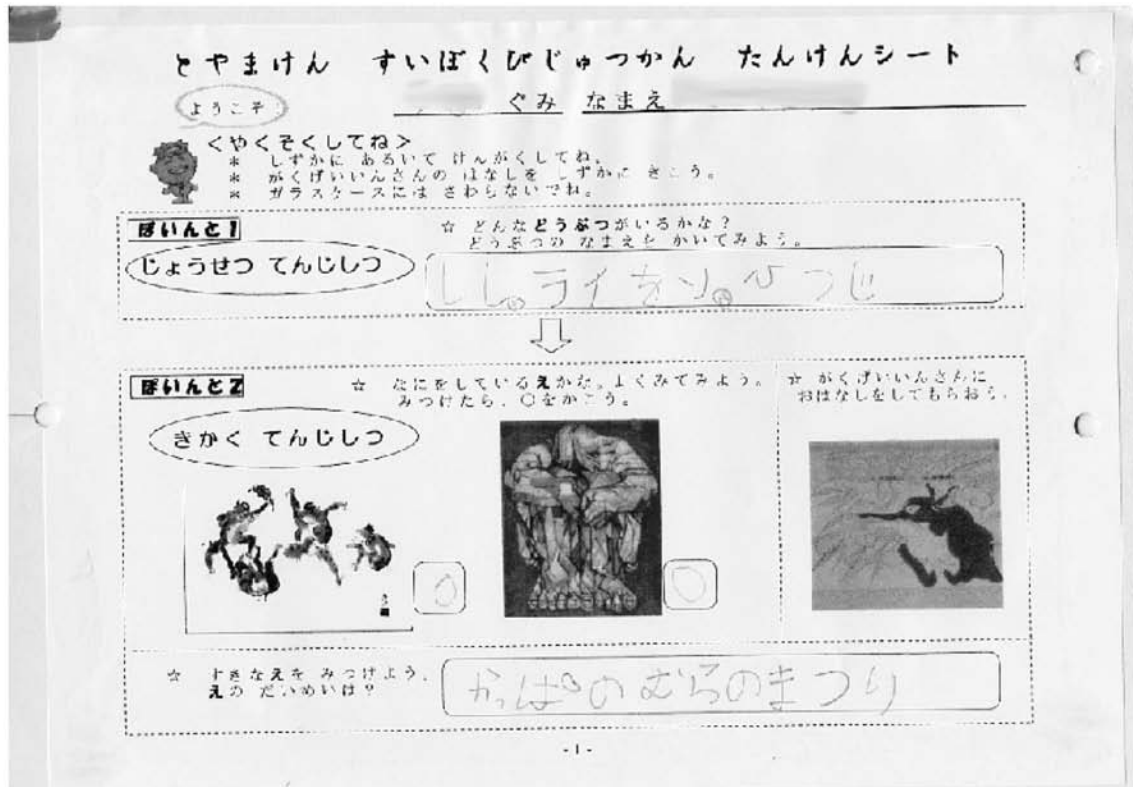 とやまけん すいぼくびじゅつかん たんけんシート
ようこそ
ぐみ なまえ
<やくそくしてね>
* しずかに あるいて けんがくしてね。
* がくげいいんさんの はなしを しずかに きこう。
* ガラスケースには さわらないでね。
ぽいんと1
じょうせつ てんじしつ
☆ どんなどうぶつがいるかな?
どうぶつの なまえを かいてみよう。
しし。ライオン。ひつじ
ぽいんと2
きかく てんじしつ
☆ なにをしているえかな。よくみてみよう。
みつけたら、○をかこう。
☆ がくげいいんさんに
おはなしをしてもらおう。
☆ すきなえを みつけよう。
えの だいめいは?
かっぱのむらのまつり
-1-